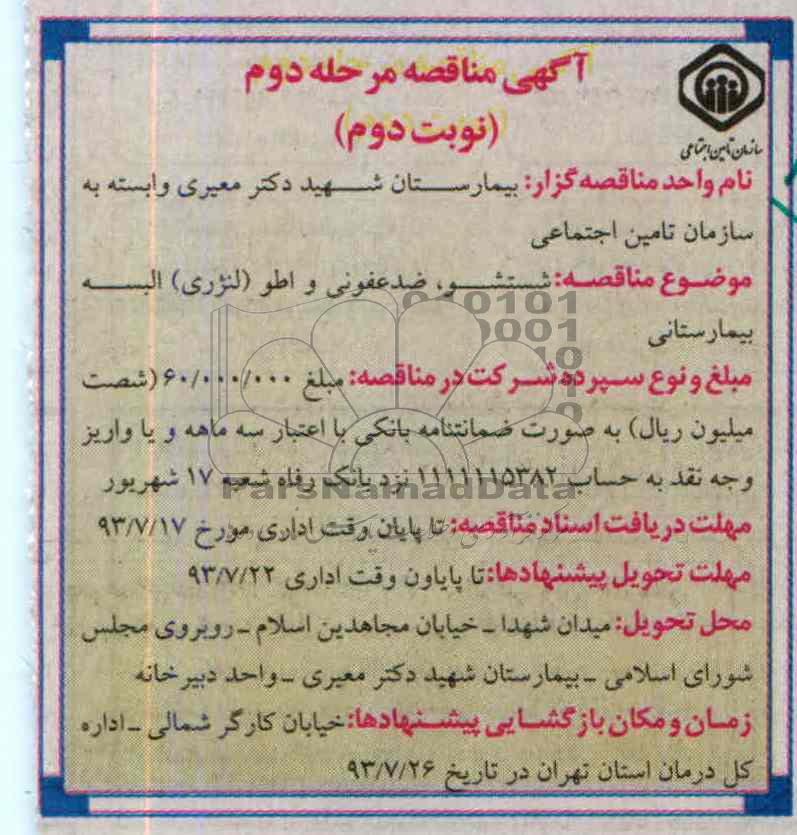 آگهی مناقصه مرحله دوم
(نوبت دوم)
سازمان تامین اجتماعی
نام واحد مناقصه‌گزار: بیمارستان شهید دکتر معیری وابسته به
سازمان تامین اجتماعی
موضوع مناقصه: شستشو، ضدعفونی و اطو (لنژری) البسه
بیمارستانی
مبلغ و نوع سپرده شرکت در مناقصه: مبلغ ۶۰/۰۰۰/۰۰۰ (شصت
میلیون ریال) به صورت ضمانتنامه بانکی با اعتبار سه ماهه و یا واریز
وجه نقد به حساب ۱۱۱۱۱۱۵۳۸۲ نزد بانک رفاه شعبه ۱۷ شهریور
ParsNamadData
مهلت دریافت اسناد مناقصه: تا پایان وقت اداری مورخ ۹۳/۷/۱۷
مهلت تحویل پیشنهادها: تا پایاون وقت اداری ۹۳/۷/۲۲
محل تحویل: میدان شهدا ـ خیابان مجاهدین اسلام ـ روبروی مجلس
شورای اسلامی ـ بیمارستان شهید دکتر معیری ـ واحد دبیرخانه
زمان و مکان بازگشایی پیشنهادها: خیابان کارگر شمالی ـ اداره
کل درمان استان تهران در تاریخ ۹۳/۷/۲۶